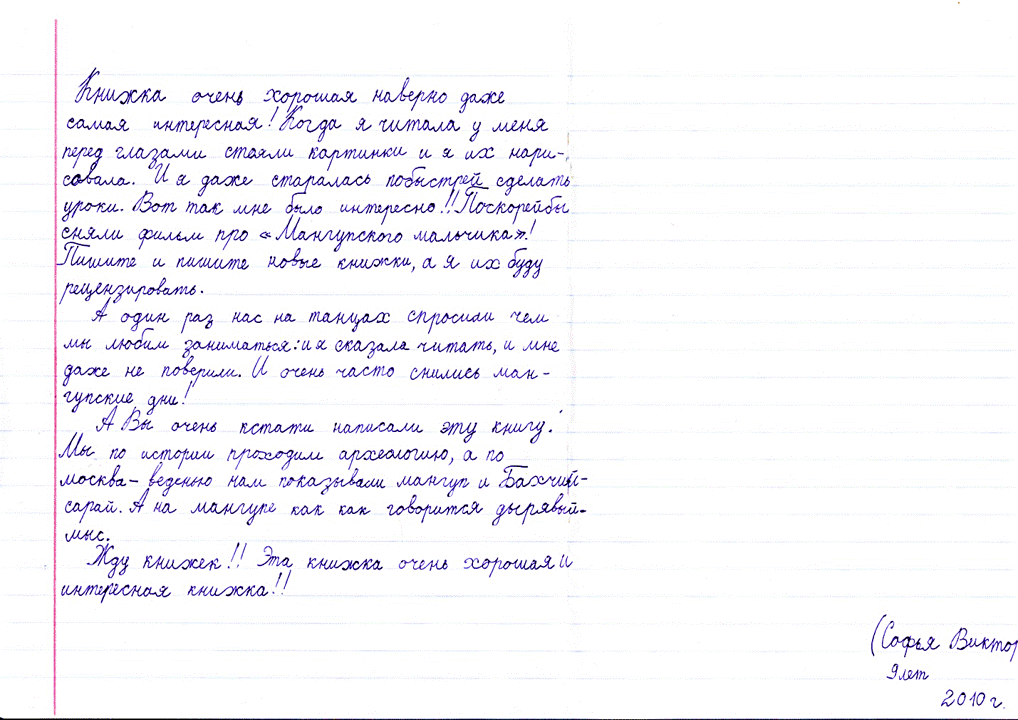 Книжка очень хорошая наверно даже
самая интересная! Когда я читала у меня
перед глазами стаяли картинки и я их нари-
совала. И я даже старалась побыстрей сделать
уроки. Вот так мне было интересно!! Поскорейбы
сняли фильм про «Мангупского мальчика»!
Пишите и пишите новые книжки, а я их буду
рецензировать.
А один раз нас на танцах спросили чем
мы любим заниматься: и я сказала читать, и мне
даже не поверили. И очень часто снились ман-
гупские дни!
А Вы очень кстати написали эту книгу.
Мы по истории проходим археологию, а по
москва-веденью нам показывали мангуп и Бахчий-
сарай. А на мангупе как как говорится дырявый-
мыс.
Жду книжек!! Эта книжка очень хорошая и
интересная книжка!!
(Софья Виктор
9 лет
2010 г.